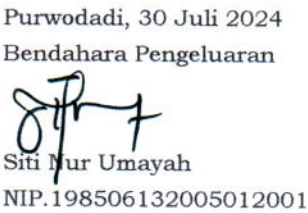 Purwodadi, 30 Juli 2024
Bendahara Pengeluaran
Siti Nur Umayah
NIP.198506132005012001